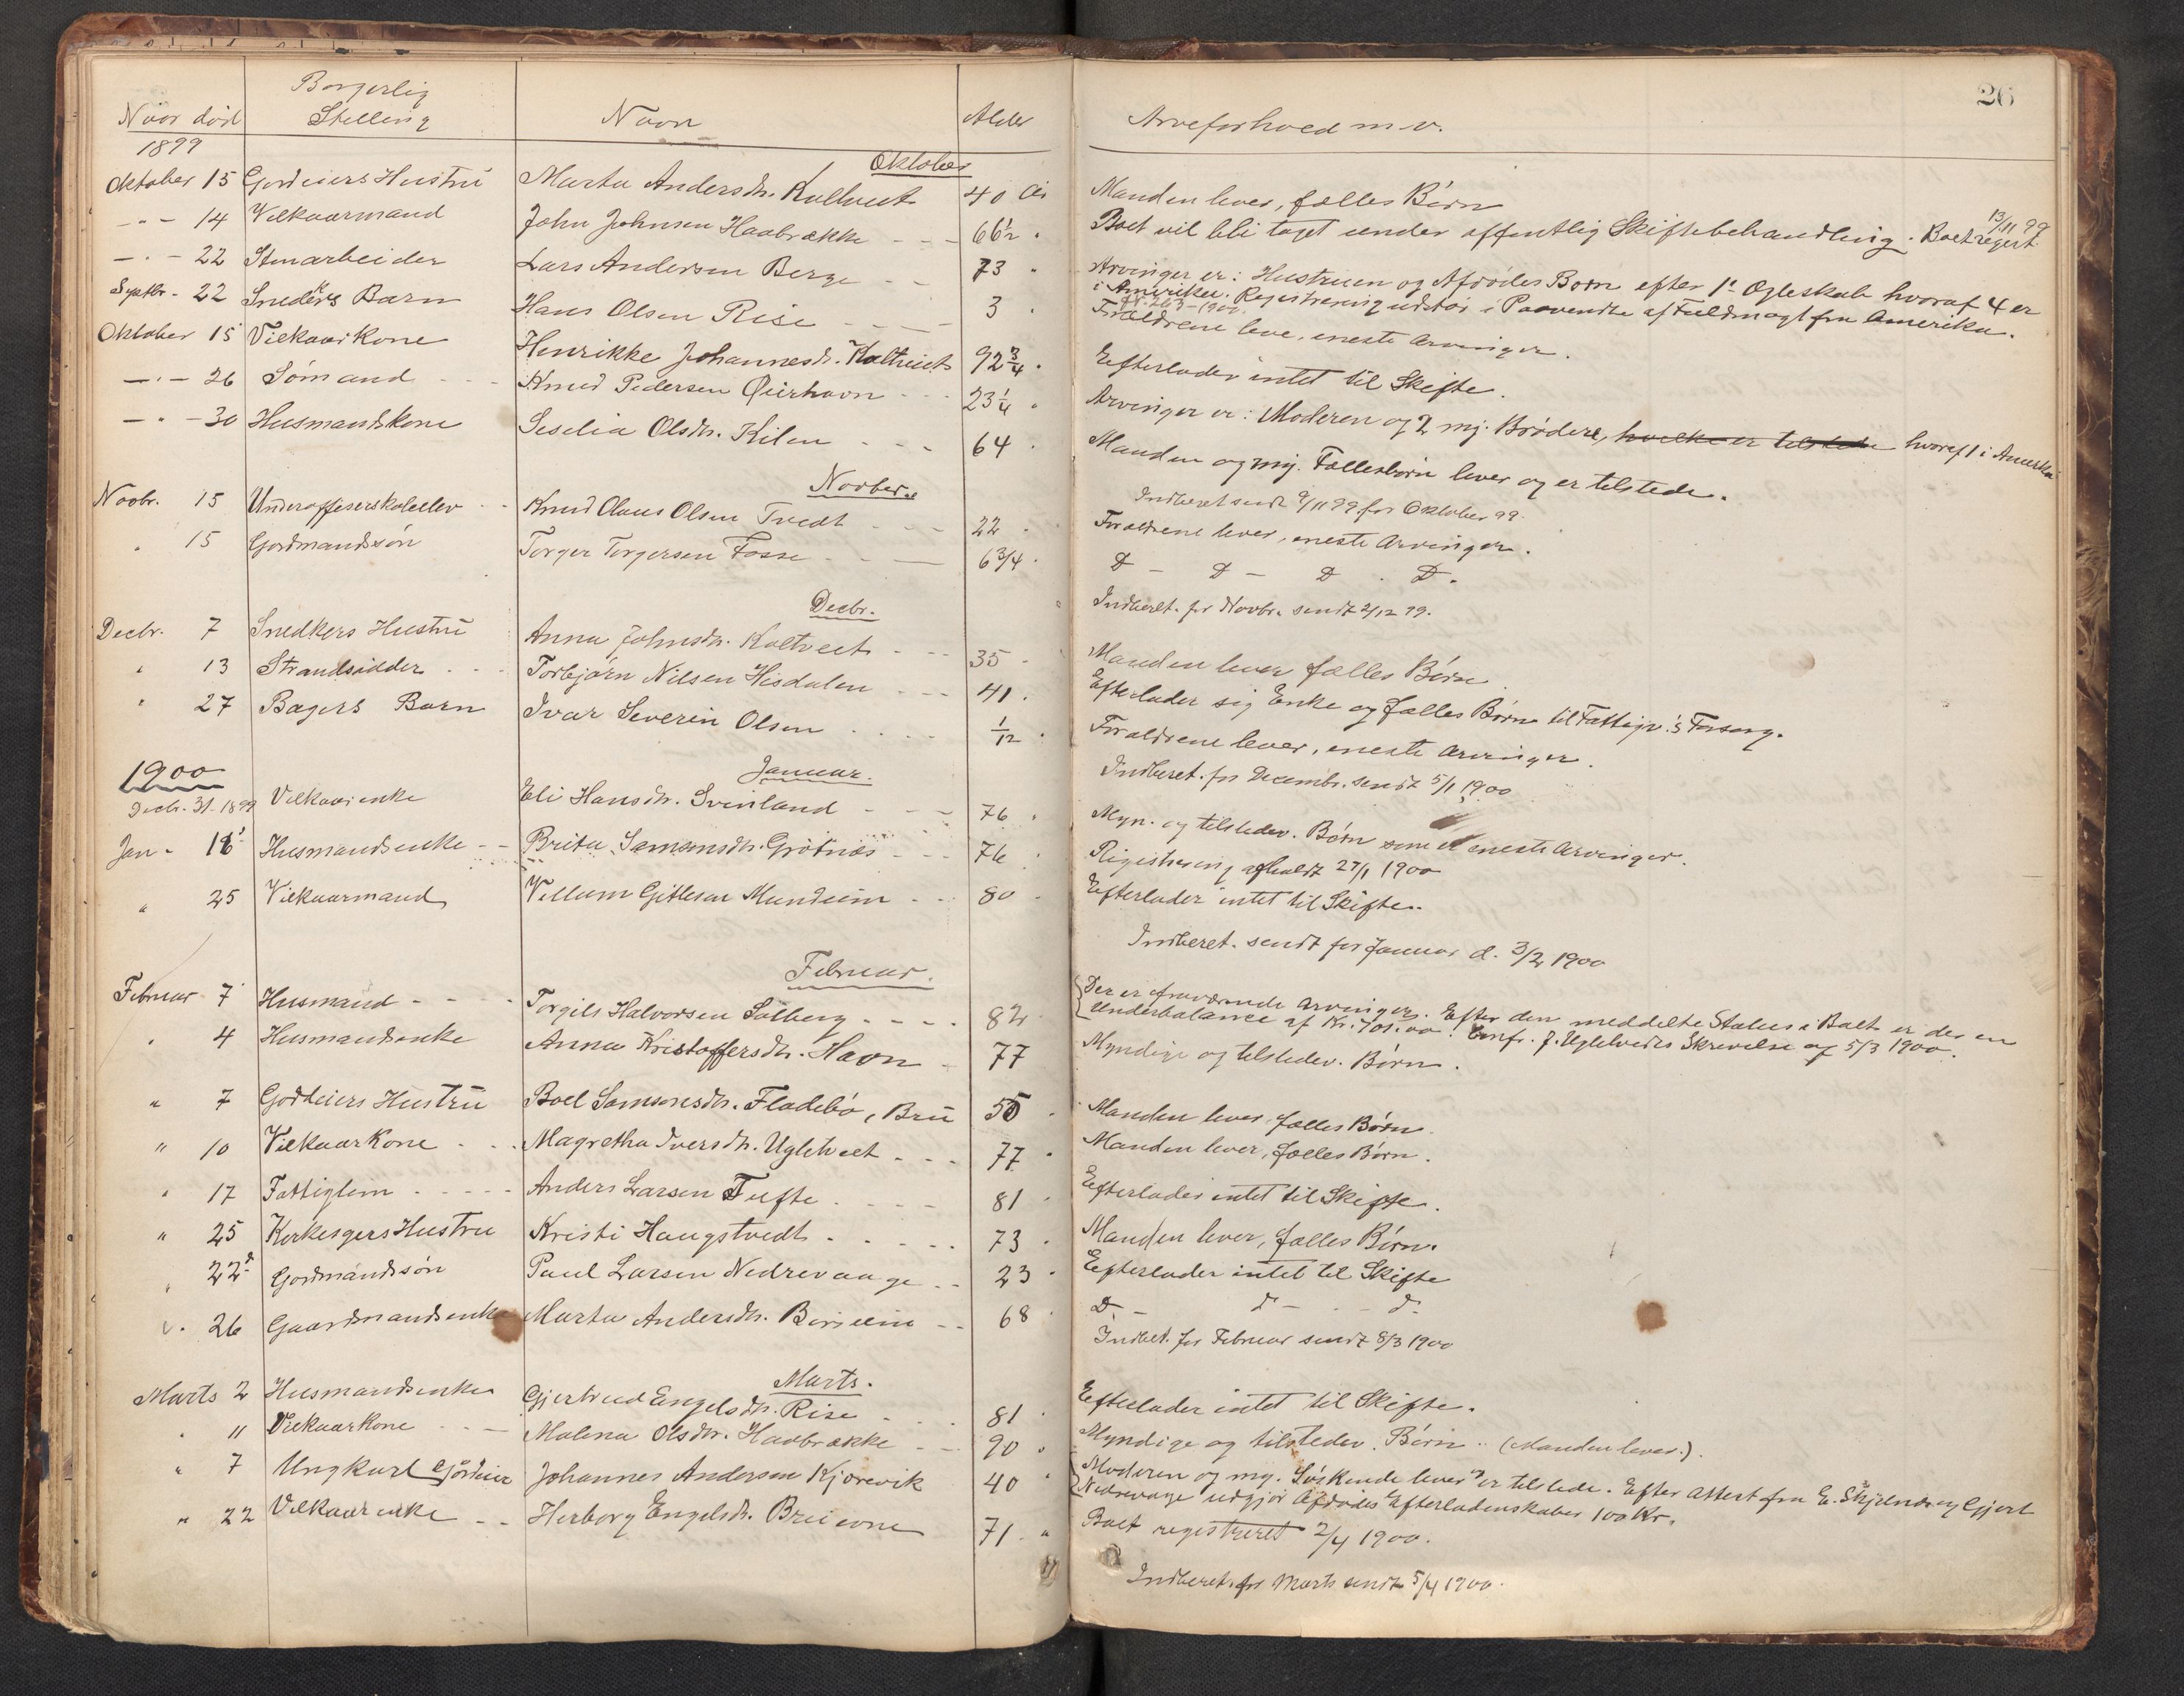 26
Naar død Borgerlig Stilling Navn Alder Arveforhold m.v.
1899
Oktober
Oktober 15 Gordeiers Hustru Marta Andersdr. Kaltveit 40 Aar Manden lever, fælles Børn
-"- 14 Vilkaarmand John Johnsen Havbrække - - 66½ " Boet vil bli taget under offentlig Skiftebehandling. Boet regist. 13/11 99
-"- 22 Stenarbeider Lars Andersen Berge - - 73 " Arvinger er: Hustruen og Afdødes Børn efter 1ste Ægteskab hvoraf 4 er
i Amerika. Registrering udstaar i Paavente af Fuldmagt fra Amerika.
Septbr. 22 Snedkers Barn Hans Olsen Rise - - 3 " Forældrene leve, eneste Arvinger.
Oktober 15 Vilkaarkone Henrikke Johannesdr. Kaltveit 92¾ " Efterlader intet til Skifte.
-"- 26 Sømand - - Knud Pedersen Øierhavn - - 23¼ " Arvinger er: Moderen og 2 mj. Brødre, hvilke er tilstede hvoraf 1 i Amerika
-"- 30 Husmandskone Seselia Olsdr. Kilen - - 64 " Manden og myj. Fællesbørn lever og er tilstede.
Indberet sendt 9/11 99 for Oktober 99.
Novber.
Novbr. 15 Underoffiserskoleelev - Knud Olaus Olsen Tvedt - - 22 " Forældrene lever, eneste Arvinger.
" 15 Gordmandssøn Torger Torgersen Fosse - - 6 3/4 " D - D - D - D.
Indberet. for Novbr. sendt 2/12 99.
Decbr.
Decbr. 7 Snedkers Hustru Anna Johnsdr. Kaltveit - - 35 " Manden lever fælles Børn
" 13 Strandsidder - - Torbjørn Nilsen Hisdalen - - 41 " Efterlader sig Enke og fælles Børn til Fattigv.'s Forsørg.
" 27 Bagers Barn Ivar Severin Olsen - - 1/12 " Forældrene lever, eneste Arvinger.
Indberet. for Decembr. sendt 5/1 1900
1900 Januar.
Decbr. 31-1899 Vilkaarenke Eli Hansdr. Svinland - - 76 " Myn. og tilstedev. Børn som eneste Arvinger.
Jan. 18 Husmandsenke - - Brita Samsonsdr. Grøtnæs - - 76 " Registrering afholdt 27/1 1900
" 25 Vilkaarmand Villum Gitlesen Mundeim - - 80 " Efterlader intet til Skifte.
Indberet. sendt for Januar d. 3/2 1900
Februar.
Februar 7 Husmand - - Torgils Halvorsen Solberg - - 82 " Der er fraværende Arvinger. Efter den meddelte Status i Boet er der en
Underbalance af Kr. 701.00. Conf. J. Ugletvedts Skrivelse af 5/3 1900.
" 4 Husmandsenke Anna Kristoffersdr. Havn - 77 Myndige og tilstedev. Børn.
" 7 Gordeiers Hustru Boel Samsonsdr. Fladebø, Bru 55 " Manden lever fælles Børn
" 10 Vilkaarkone - - Magretha Iversdr. Ugletveit - - 77 " Manden lever, fælles Børn.
" 17 Fattiglem - - Anders Larsen Tufte - - 81 " Efterlader intet til Skifte.
" 25 Kirkesgers Hustru Kristi Haugstvedt - - 73 " Manden lever, fælles Børn.
" 22 Gordmandssøn Paul Larsen Nedrevaage - - 23 " Efterlader intet til Skifte
" 26 Gaardmandsenke Marta Andersdr. - - 68 " D. - d - d.
Indbet. for Februar sendt 8/3 1900
Marts.
Marts 2 Husmandsenke Gjertrud Engelsdr. Rise - - 81 " Efterlader intet til Skifte.
" 11 Vilkaarkone - - Malena Olsdr. Havbrække - - 90 " Myndige og tilstedev. Børn. (Manden lever.)
" 7 Ungkarl Gordeier Johannes Andersen Kjørevik 40 " Moderen og myj. Søskende lever og er tilstede. Efter Attest fra E. Skjelnes og Gjert
Nedrevage udgjør Afdødes Efterladenskaber 100 Kr.
" 22 Vilkaarenke - - Herborg Engelsdr. 71 " Boet registreret 2/4 1900.
Indberet. for Marts sendt 5/4 1900.